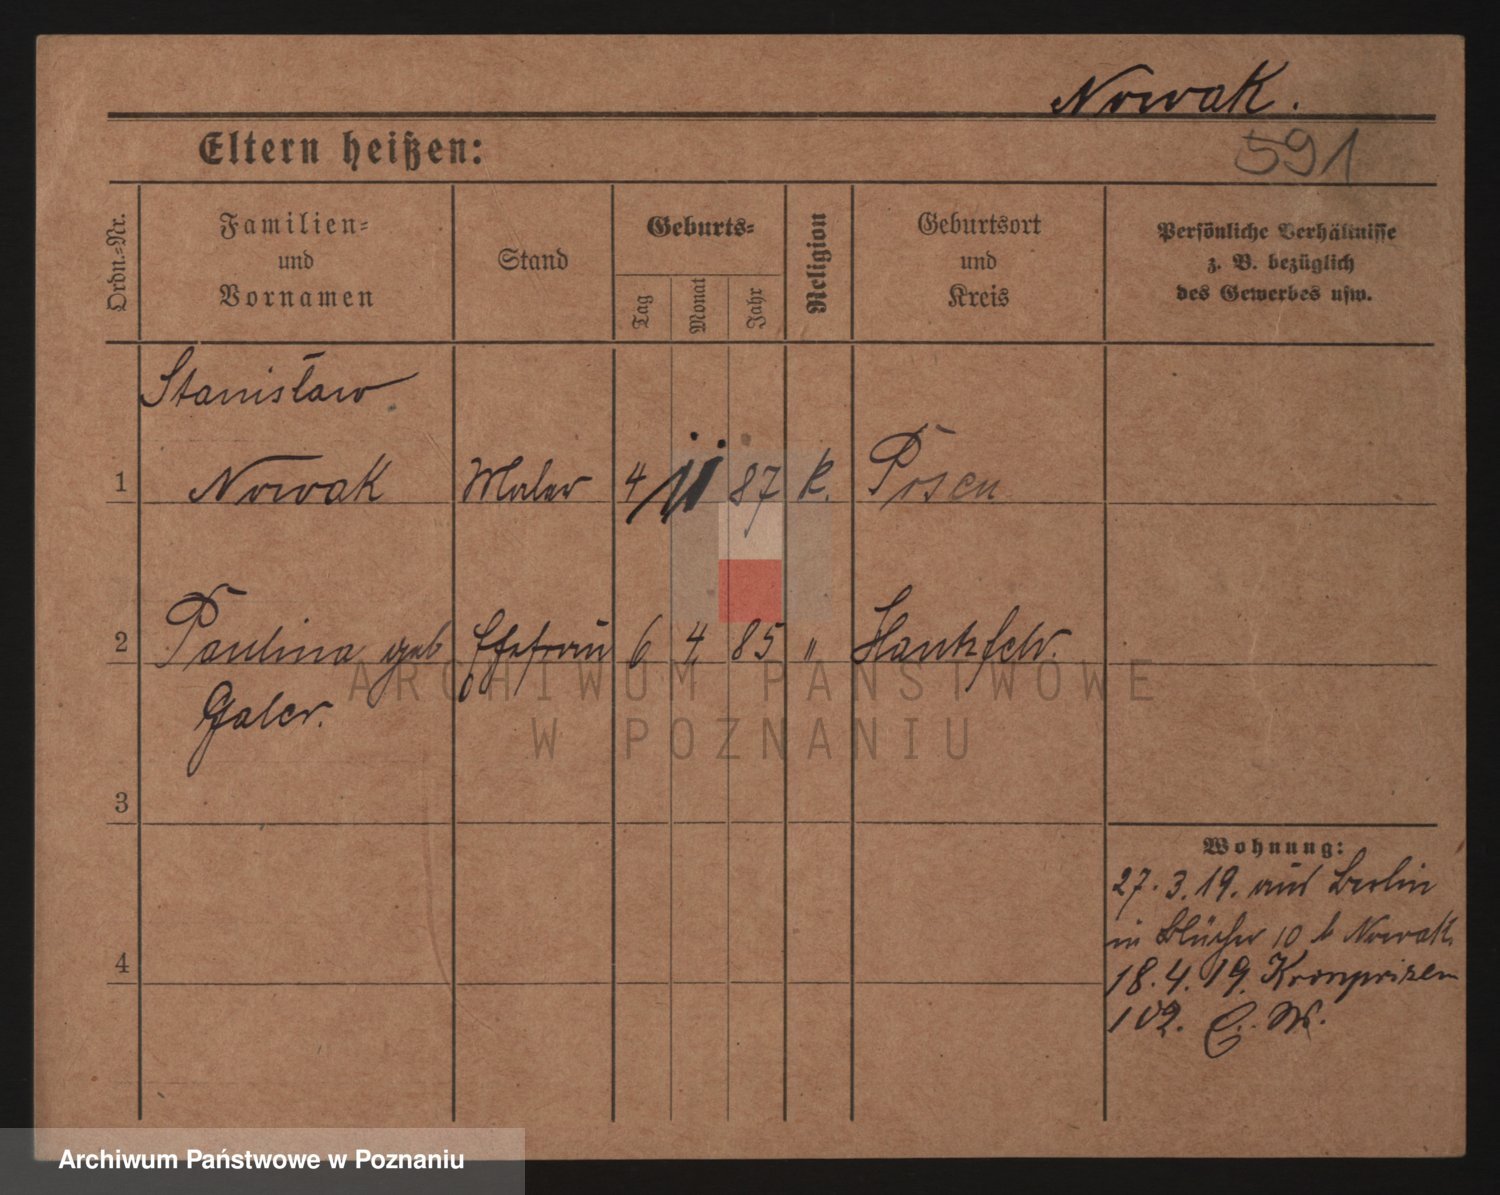 Nowak.
Eltern heißen:
591
Ordn.-Nr.
Familien-
und
Vornamen
Stand
Geburts-
Tag
Monat
Jahr
Religion
Geburtsort
und
Kreis
Persönliche Verhältnisse
z. B. bezüglich
des Gewerbes usw.
Stanisław
1 Nowak Maler 4 11 87 k. Posen
2 Paulina geb Ehefrau 6 4 85 "
ARCHIWUM PAŃSTWOWE
W POZNANIU
3
Wohnung:
27.3.19. aus Berlin
in Blücher 10 b Nowak.
4
18.4.19. Kronprizen
102. E. W.
Archiwum Państwowe w Poznaniu